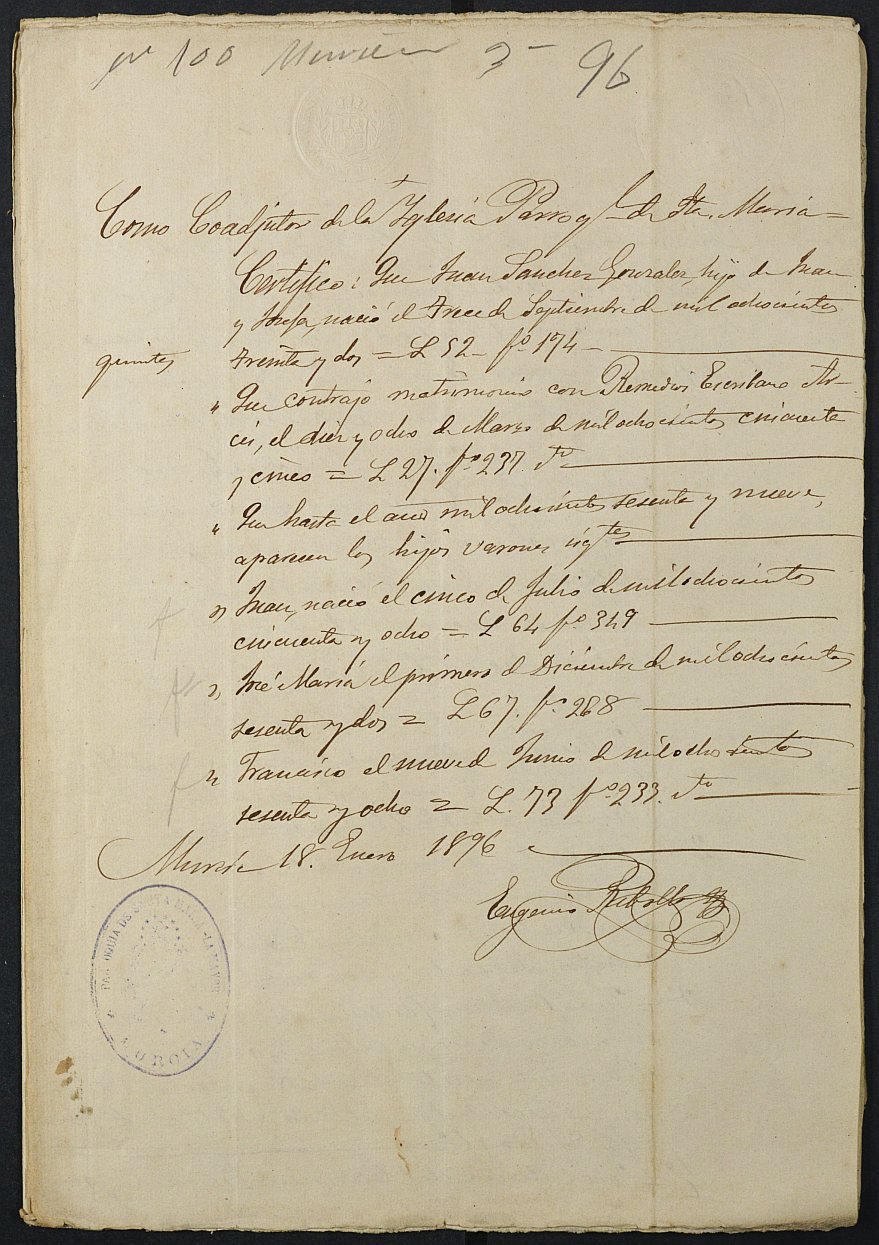 nº 100 Murcia 3- 96
Como Coadjutor de la Yglesia Parroql. de Sta. Maria=
Certifico: Que Juan Sanchez Gonzalez, hijo de Juan
y Josefa, nació el Trece de Septiembre de mil ochocientos
quintas
Treinta y dos = L 52 - fº 174 -
" Que contrajo matrimonio con Remedios Escribano Ar-
ces, el diez y ocho de Marzo de mil ochocientos cincuenta
y cinco = L 27. fº 237. vto
" Que hasta el año mil ochocientos sesenta y nueve,
aparecen los hijos varones sigtes
" Juan, nació el cinco de Julio de mil ochocientos
cincuenta y ocho = L 64 fº 349
" José María el primero de Diciembre de mil ochocientos
sesenta y dos = L 67. fº 268
" Francisco el nueve de Junio de mil ochocientos
sesenta y ocho = L. 73 fº 233. vto
Murcia 18. Enero 1896
Eugenio
PARROQUIA DE SANTA MARIA LA MAYOR
MURCIA